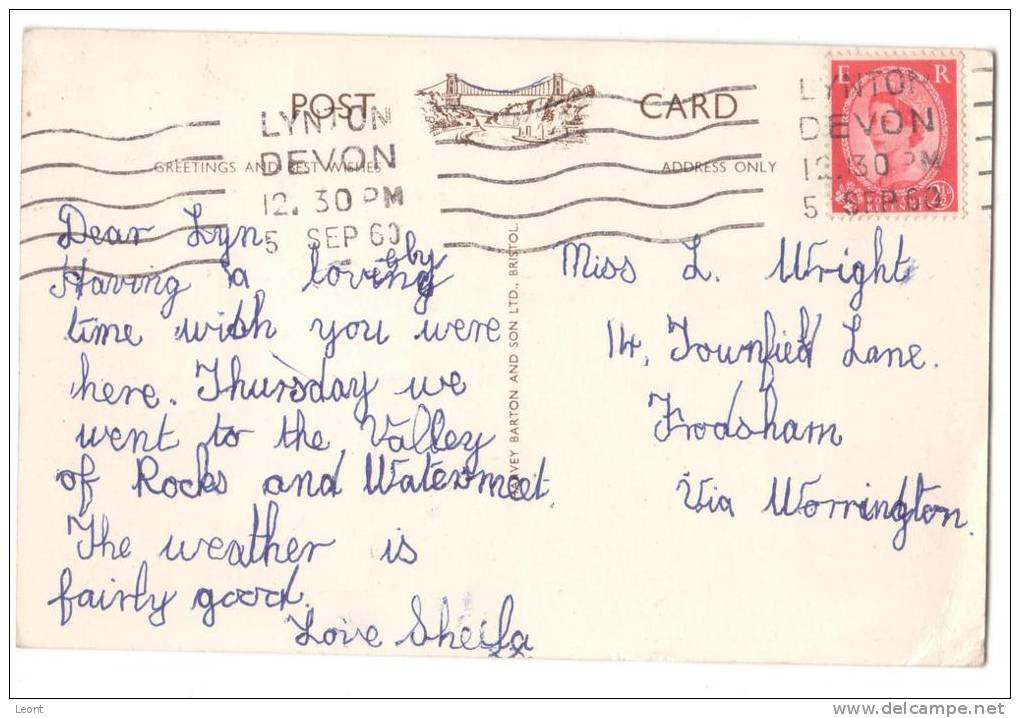 POST CARD
GREETINGS AND BEST WISHES
ADDRESS ONLY
LYNTON
DEVON
12. 30 PM
5 SEP 60
LYNTON
DEVON
12. 30 PM
5 SEP 60
E R
Dear Lyn
Having a loving
time wish you were
here. Thursday we
went to the Valley
of Rocks and Watersmeet.
The weather is
fairly good.
Love Sheila
HARVEY BARTON AND SON LTD., BRISTOL.
Miss L. Wright
14, Townfield Lane.
Frodsham
Via Worrington.
Leont
www.delcampe.net